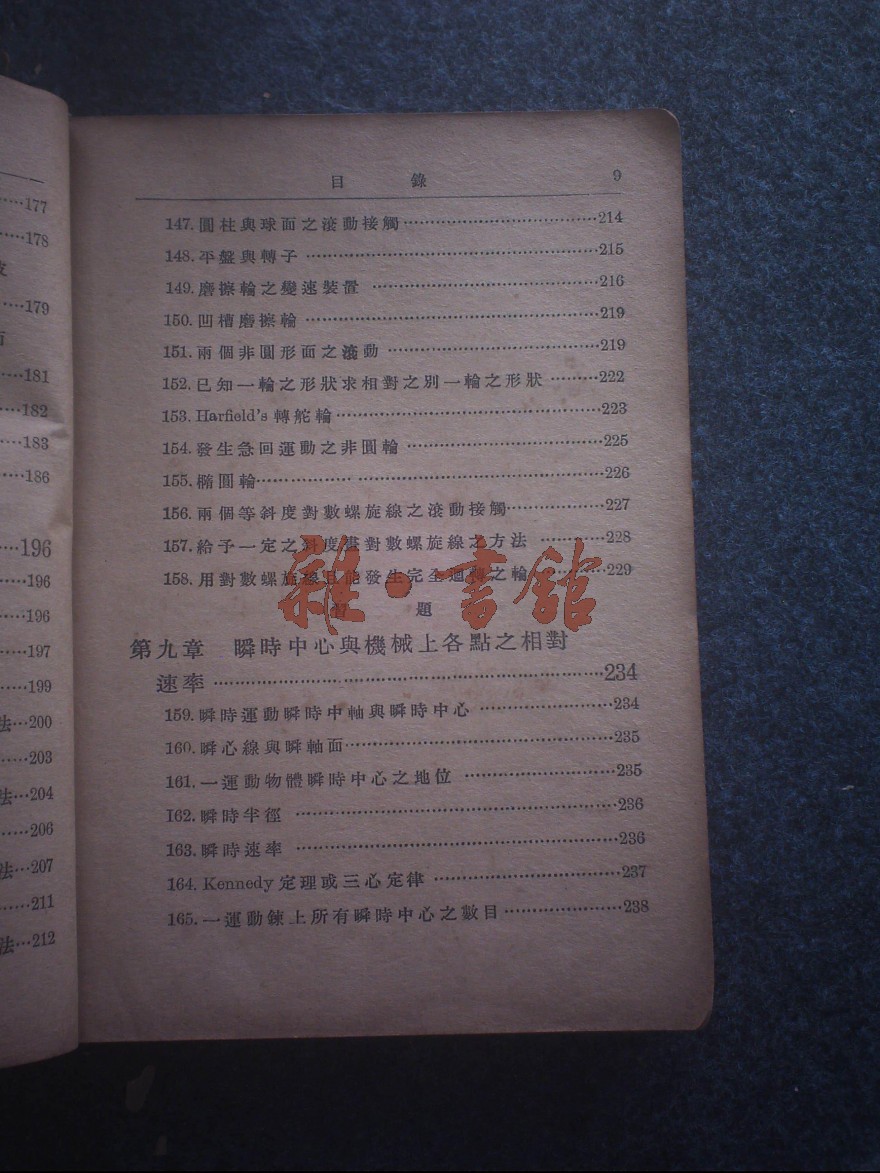 177
178
179
181
182
183
186
196
196
196
197
199
法…200
203
法…204
206
法…207
211
法…212
目 錄 9
147. 圓柱與球面之滾動接觸…214
148. 平盤與轉子…215
149. 磨擦輪之變速裝置…216
150. 凹槽磨擦輪…219
151. 兩個非圓形面之滾動…219
152. 已知一輪之形狀求相對之別一輪之形狀…222
153. Harfield's 轉舵輪…223
154. 發生急回運動之非圓輪…225
155. 橢圓輪…226
156. 兩個等斜度對數螺旋線之滾動接觸…227
157. 給予一定之斜度畫對數螺旋線之方法…228
158. 用對數螺旋線且能發生完全迴轉之輪…229
雜·書館
習 題
第九章 瞬時中心與機械上各點之相對
速率…234
159. 瞬時運動瞬時中軸與瞬時中心…234
160. 瞬心線與瞬軸面…235
161. 一運動物體瞬時中心之地位…235
162. 瞬時半徑…236
163. 瞬時速率…236
164. Kennedy 定理或三心定律…237
165. 一運動鍊上所有瞬時中心之數目…238